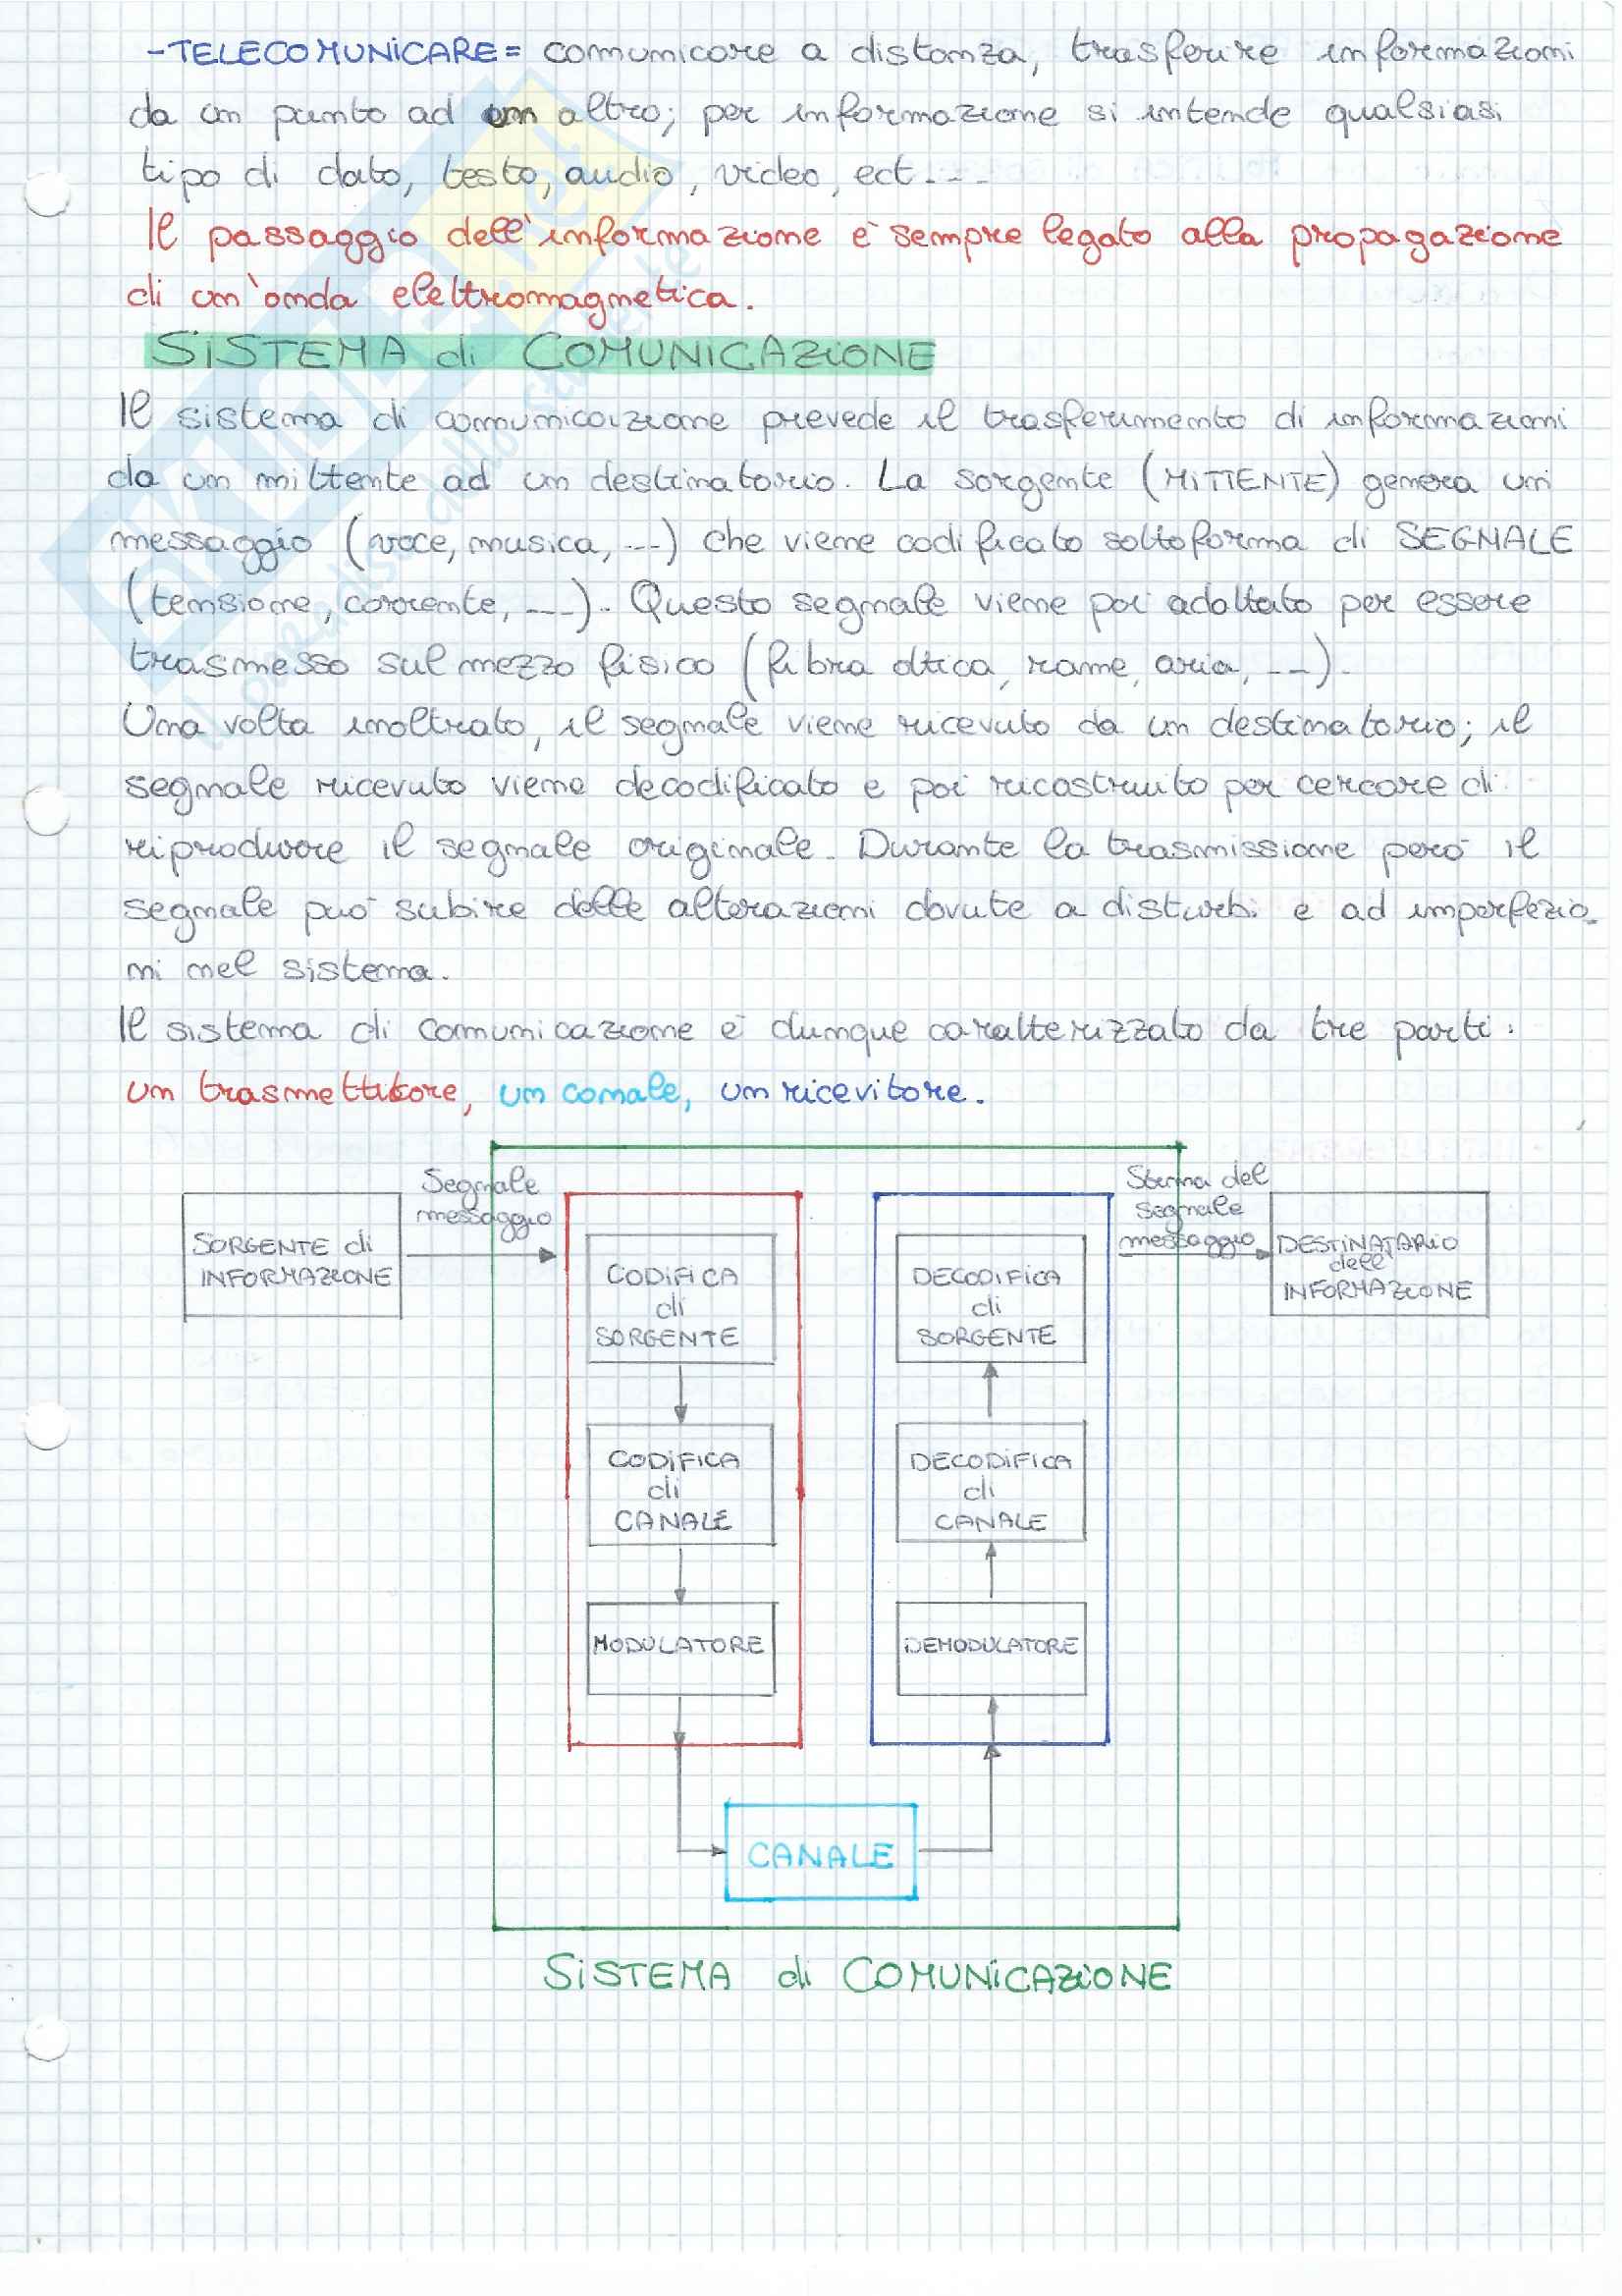 -TELECOMUNICARE= comunicare a distanza, trasferire informazioni
da un punto ad un altro; per informazione si intende qualsiasi
tipo di dato, testo, audio, video, ect....
Il passaggio dell'informazione è sempre legato alla propagazione
di un'onda elettromagnetica.
SISTEMA di COMUNICAZIONE
Il sistema di comunicazione prevede il trasferimento di informazioni
da un mittente ad un destinatario. La sorgente (MITTENTE) genera un
messaggio (voce, musica, ...) che viene codificato sottoforma di SEGNALE
(tensione, corrente, ...). Questo segnale viene poi adattato per essere
trasmesso sul mezzo fisico (fibra ottica, rame, aria, ...).
Una volta inoltrato, il segnale viene ricevuto da un destinatario; il
segnale ricevuto viene decodificato e poi ricostruito per cercare di
riprodurre il segnale originale. Durante la trasmissione però il
segnale può subire delle alterazioni dovute a disturbi e ad imperfezio-
ni nel sistema.
Il sistema di comunicazione è dunque caratterizzato da tre parti:
un trasmettitore, un canale, un ricevitore.
Segnale
messaggio
Stima del
segnale
messaggio
SORGENTE di
INFORMAZIONE
DESTINATARIO
dell'
INFORMAZIONE
CODIFICA
di
SORGENTE
DECODIFICA
di
SORGENTE
CODIFICA
di
CANALE
DECODIFICA
di
CANALE
MODULATORE
DEMODULATORE
CANALE
SISTEMA di COMUNICAZIONE